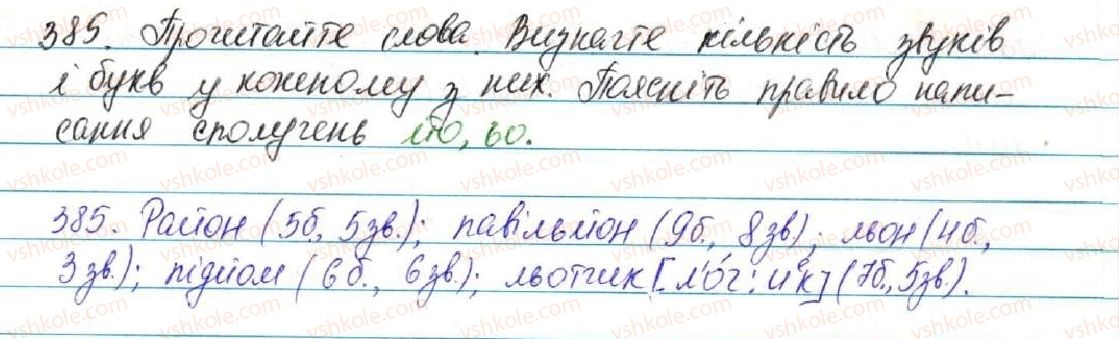 385. Прочитайте слова. Визначте кількість звуків
і букв у кожному з них. Поясніть правило напи-
сання сполучень йо, ьо.
385. Район (5б., 5зв.); павільйон (9б., 8зв); льон (4б.,
3зв.); підйом (6б., 6зв.); льотчик [л'о́ч:ик] (7б., 5зв.).